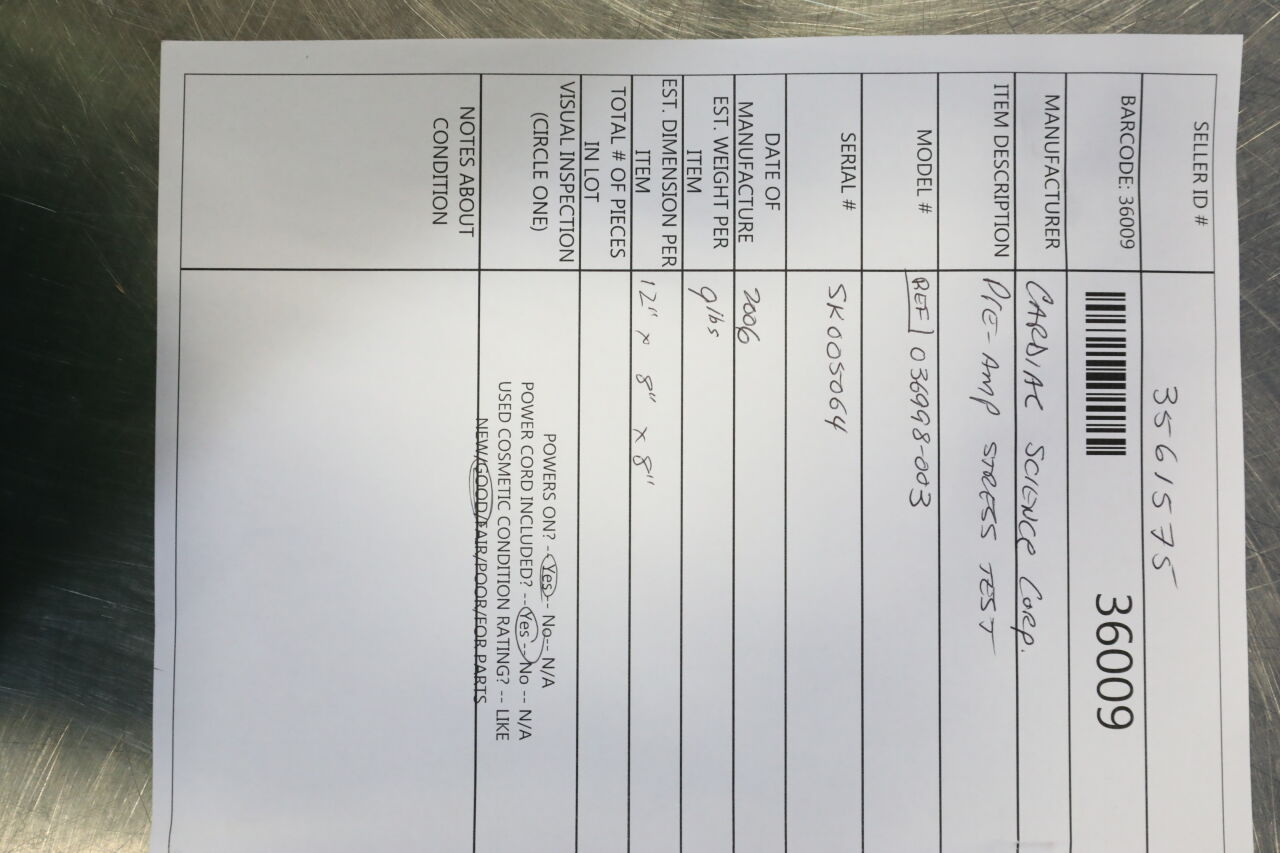 SELLER ID # 3561575
BARCODE: 36009 36009
MANUFACTURER CARDIAC SCIENCE CORP.
ITEM DESCRIPTION PRE-AMP STRESS TEST
MODEL # REF 036998-003
SERIAL # SK005064
DATE OF
MANUFACTURE 2006
EST. WEIGHT PER
ITEM 9lbs
EST. DIMENSION PER
ITEM 12" x 8" x 8"
TOTAL # OF PIECES
IN LOT
VISUAL INSPECTION
(CIRCLE ONE)
POWERS ON? -- Yes -- No-- N/A
POWER CORD INCLUDED? -- Yes -- No -- N/A
USED COSMETIC CONDITION RATING? -- LIKE
NEW/GOOD/FAIR/POOR/FOR PARTS
NOTES ABOUT
CONDITION